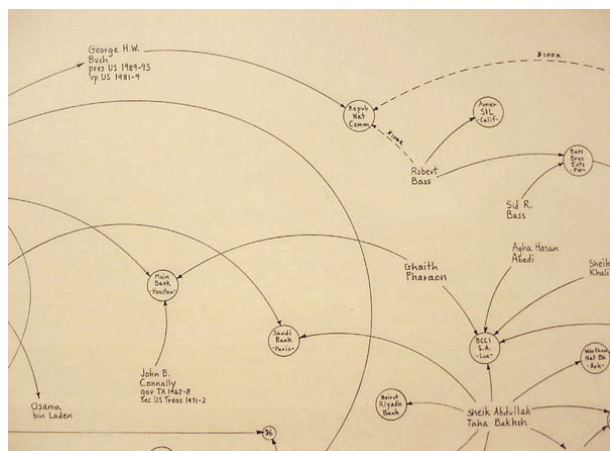 George H.W.
Bush
pres US 1989-93
vp US 1981-9
$100K
Repub
Nat
Comm
Amer
S&L
-Calif-
$100K
Robert
Bass
Bass
Bros
Ents
-FW-
Sid R.
Bass
Agha Hasan
Abedi
Ghaith
Pharaon
Sheik
Khali
Main
Bank
-Houston-
Saudi
Bank
-Paris-
BCCI
S.A.
-Lux-
Worthen
Nat Bk
-Ark-
John B.
Connally
gov TX 1962-8
Sec US Treas 1971-2
Osama
bin Laden
Beirut
Riyadh
Bank
Sheik Abdullah
Taha Bakhsh